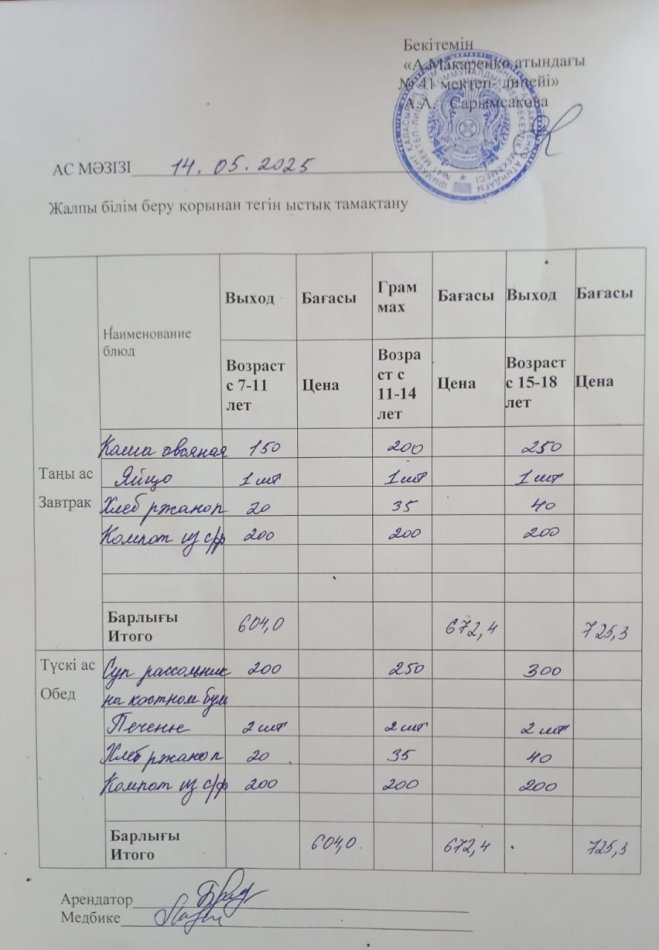 Бекітемін
«А.Макаренко атындағы
№ 41 мектеп- лицейі»
А.А. Сарымсакова
АС МӘЗІЗІ 14.05.2025
Жалпы білім беру қорынан тегін ыстық тамақтану
Наименование блюд | Выход | Бағасы | Грам мах | Бағасы | Выход | Бағасы
Возраст с 7-11 лет | Цена | Возраст с 11-14 лет | Цена | Возраст с 15-18 лет | Цена
Таңы ас
Завтрак
Каша овсяная 150 200 250
Яйцо 1 шт 1 шт 1 шт
Хлеб ржаной 20 35 40
Компот из с/ф 200 200 200
Барлығы
Итого 604,0 672,4 725,3
Түскі ас
Обед
Суп рассольник 200 250 300
на костном бул
Печенье 2 шт 2 шт 2 шт
Хлеб ржаной 20 35 40
Компот из с/ф 200 200 200
Барлығы
Итого 604,0 672,4 725,3
Арендатор
Медбике